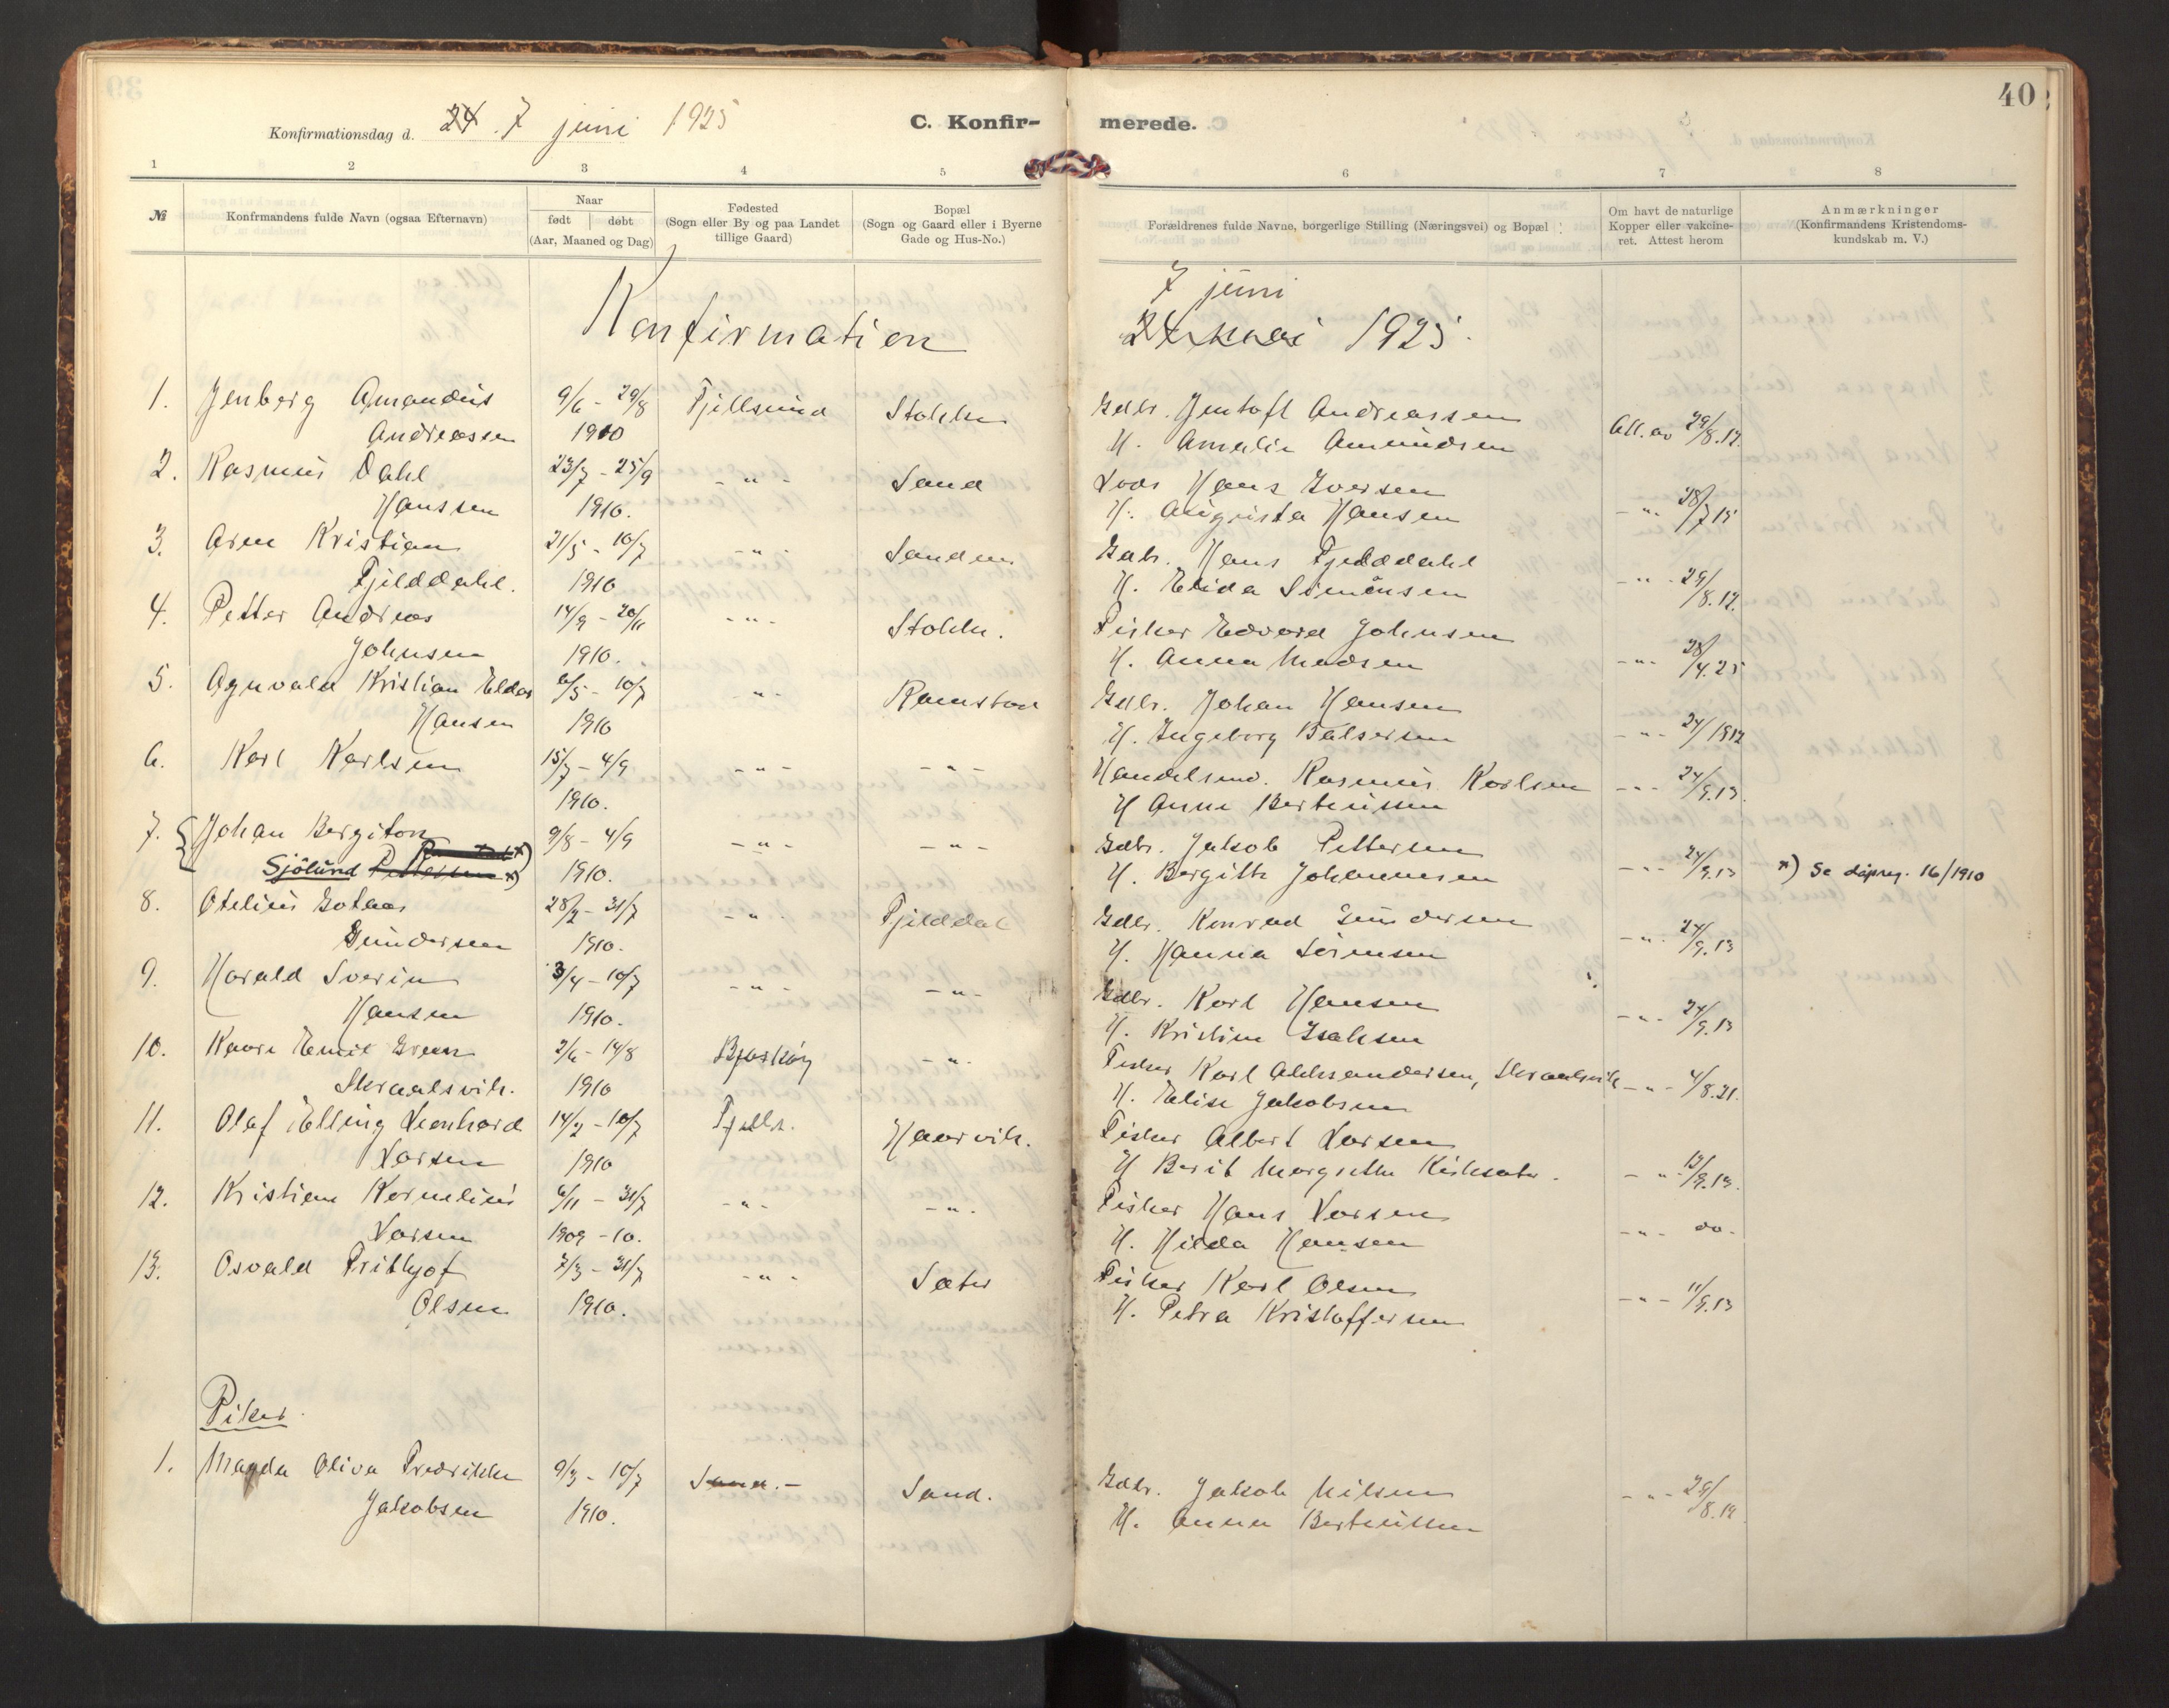 40
Konfirmationsdag d. 24. 7 juni 1925
C. Konfir-
merede.
1 2 3 4 5 6 7 8
№
Konfrmandens fulde Navn (ogsaa Efternavn)
Naar
født døbt
(Aar, Maaned og Dag)
Fødested
(Sogn eller By og paa Landet
tillige Gaard)
Bopæl
(Sogn og Gaard eller i Byerne
Gade og Hus-No.)
Forældrenes fulde Navne, borgerlige Stilling (Næringsvei) og Bopæl
Om havt de naturlige
Kopper eller vakcine-
ret. Attest herom
Anmærkninger
(Konfirmandens Kristendoms-
kundskab m. V.)
7 juni
Konfirmation 24 mai 1925.
1. Jenberg Amandus 9/6 - 29/8 Fjellsund Stokke Gdbr. Jentoft Andreassen Att. av 29/8.17.
Andreassen 1910 H. Amalie Amundsen
2. Rasmus Dahl 23/7 - 25/9 - " - Sand Lods Hans Iversen
Hanssen 1910. H. Augusta Hansen - " - 28/7 15
3. Arne Kristian 21/5 - 10/7 - " - Sanden Gdbr. Hans Fjelddahl
Fjelddahl. 1910 H. Elida Simonsen - " - 29/8.17.
4. Petter Andreas 14/9 - 20/11 - " - Stokke. Fisker Edvard Johnsen
Johnsen 1910. H. Anna Madsen - " - 28/4.25
5. Agnvald Kristian Eldor 6/5 - 10/7 - " - Ramstad Gdbr. Johan Hansen
Hansen 1910 H. Ingeborg Balsersen - " - 24/1912
6. Karl Karlsen 15/7 - 4/9 - " - - " - Handelsmd. Rasmus Karlsen - " - 24/9.13.
1910. H Anne Berteussen
7. Johan Bergiton 9/8 - 4/9 - " - - " - Gdbr. Jakob Pettersen
Sjölund Pettersen *) 1910. H. Bergitte Johannesen - " - 24/9.13 *) Se dåpreg. 16/1910
8. Otelius Gotaas 28/2 - 31/7 - " - Fjelddal Gdbr. Konrad Gundersen
Gundersen 1910. H. Hanna Sörensen - " - 24/9.13
9. Harald Sverin 3/4 - 10/7 - " - - " - Gdbr. Karl Hansen
Hansen 1910. H. Kristine Isaksen - " - 24/9.13
10. Kaare Emil Green 2/6 - 14/8 Bjarköy - " - Fisker Karl Aleksandersen, Skraalsvik - " - 4/8.21.
Skraalsvik. 1910 H. Elise Jakobsen
11. Olaf Elling Leonhard 14/2 - 10/7 Fjells. Haarvik. Fisker Albert Larsen
Larsen 1910 H Berit Margrethe Kirksæter. - " - 13/9.13.
12. Kristian Kornelius 6/11 - 31/7 - " - - " - Fisker Hans Larsen
Larsen 1909 - 10. H. Hilda Hansen - " - do.
13. Osvald Frithjof 7/3 - 31/7 - " - Sæter Fisker Karl Olsen
Olsen 1910. H. Petra Kristoffersen - " - 11/9.13
Piker.
1. Magda Oliva Fredrikke 9/3 - 10/7 Sand. - Sand. Gdbr. Jakob Nilsen - " - 29/8.19
Jakobsen 1910. H. Anna Berteussen